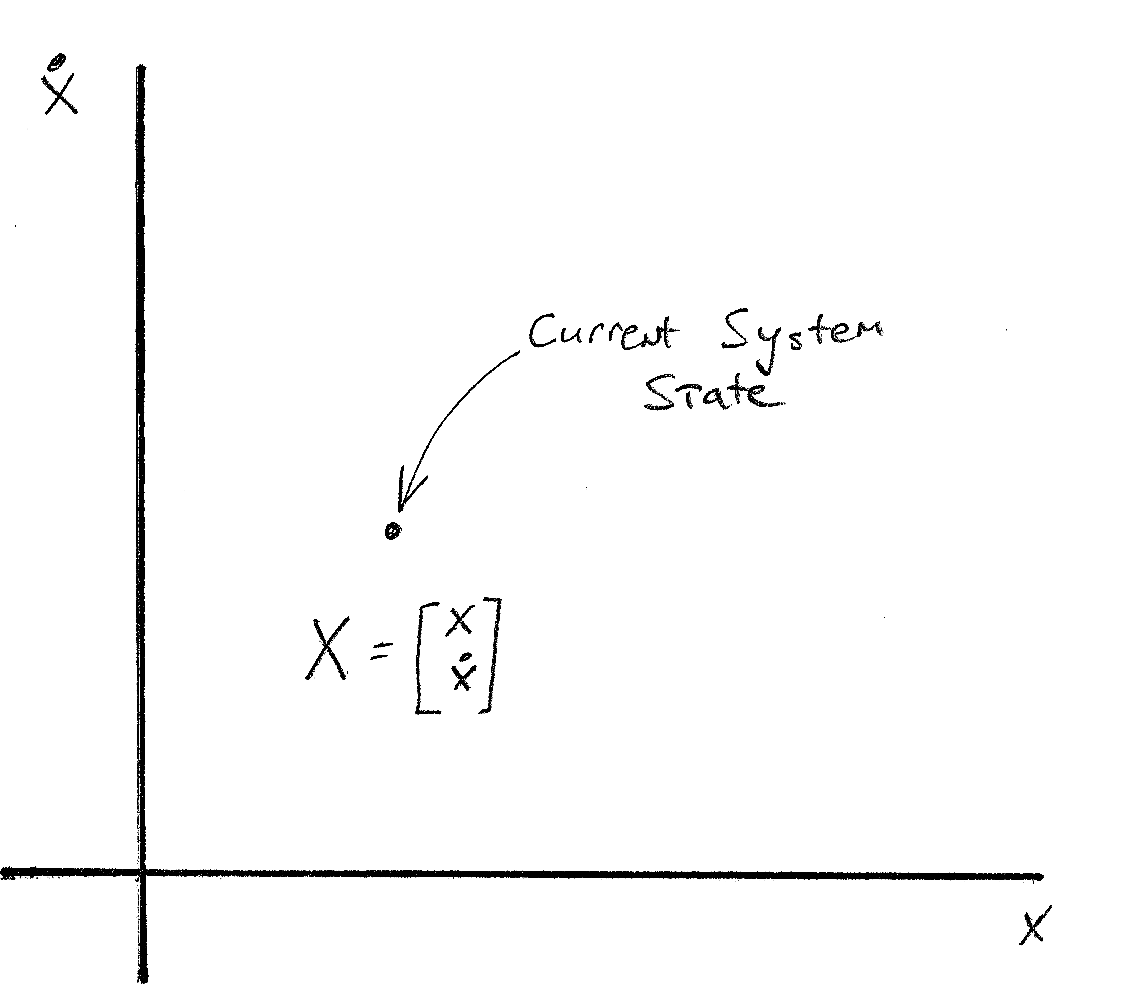 Ẋ
Current System
State
X = [x
ẋ]
x